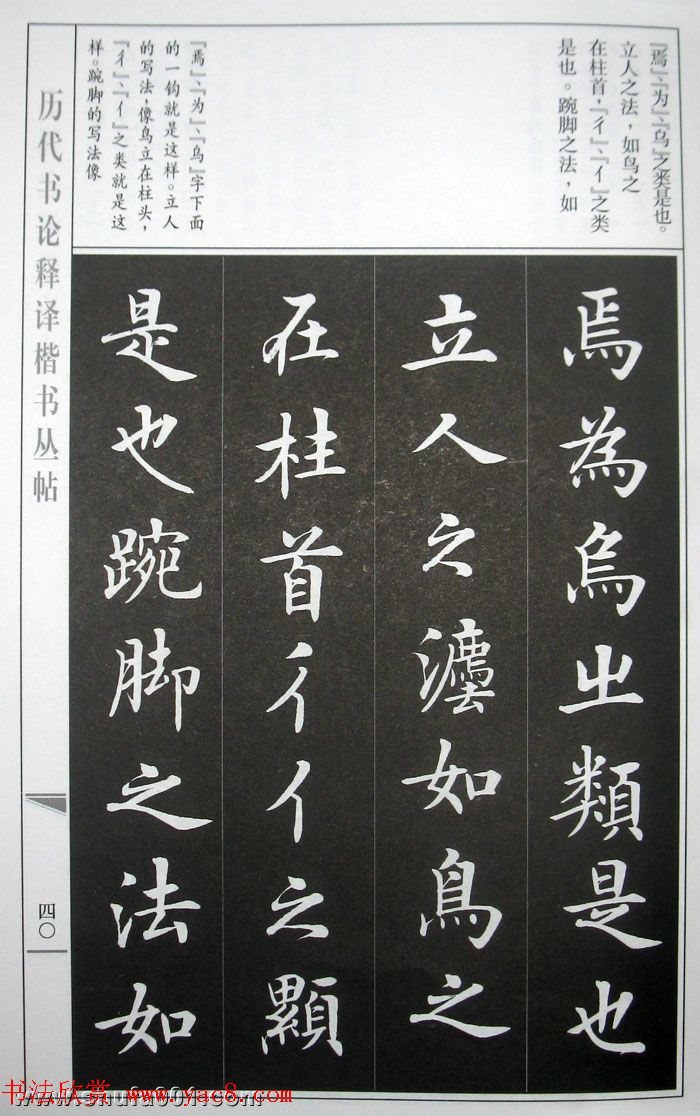 『焉』、『为』、『乌』之类是也。
立人之法，如鸟之
在柱首，『彳』、『亻』之类
是也。踠脚之法，如
『焉』、『为』、『乌』字下面
的一钩就是这样。立人
的写法，像鸟立在柱头，
『彳』、『亻』之类就是这
样。踠脚的写法像
焉為烏㞢類是也
立人之灋如鳥之
在柱首彳亻之類
是也踠脚之法如
历代书论释译楷书丛帖
四〇
书法欣赏 www.yac8.com
www.shufa001.com